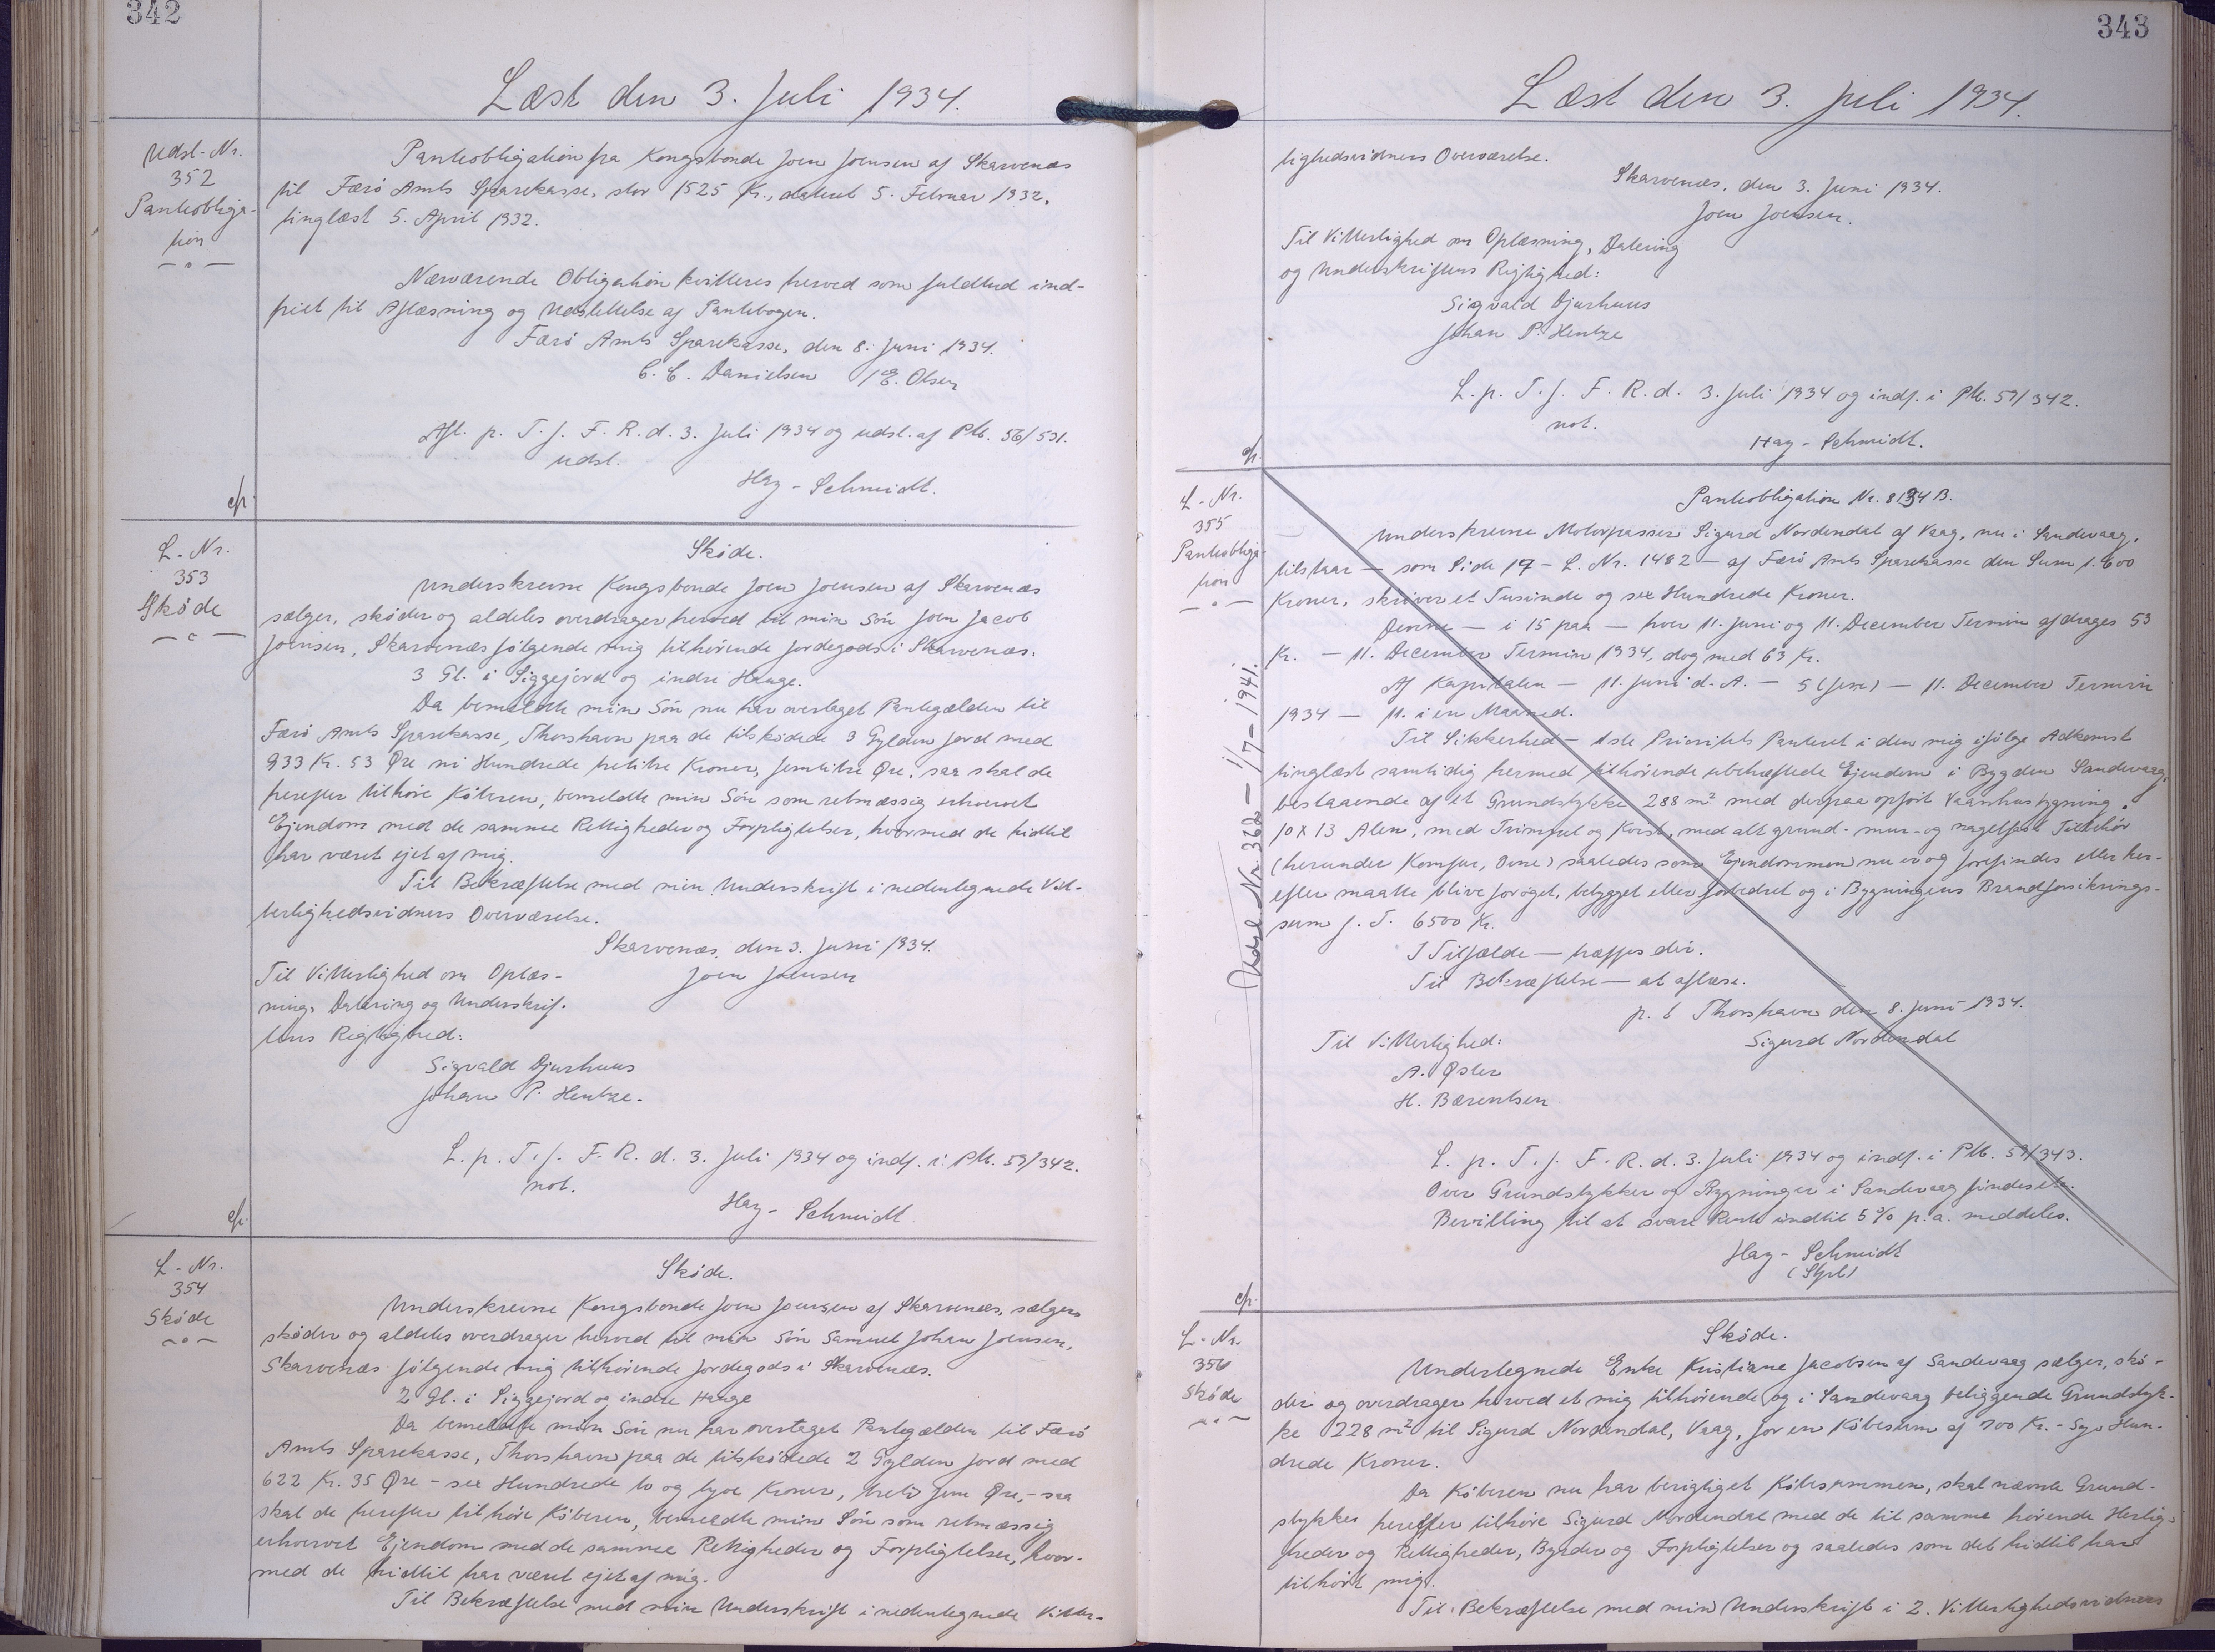 342
Læst den 3. Juli 1934.
Udsl-Nr.
352
Panteobliga-
tion
Panteobligation fra Kongsbonde Joen Joensen af Skarvenæs
til Færö Amts Sparekasse, stor 1525 Kr., dateret 5. Februar 1932,
tinglæst 5. April 1932.
Nærværende Obligation kvitteres herved som fuldtud ind-
friet til Aflæsning og Udslettelse af Pantebogen.
Færö Amts Sparekasse, den 8. Juni 1934.
C. C. Danielsen / E. Olsen
Afl. p. T. f. F. R. d. 3. Juli 1934 og udsl. af Ptb. 56/531.
udsl.
Hay-Schmidt.
L-Nr.
353
Sköde
Sköde.
Underskrevne Kongsbonde Joen Joensen af Skarvenæs
sælger, sköder og aldeles overdrager herved til min Sön Joen Jacob
Joensen, Skarvenæs følgende mig tilhörende Jordegods i Skarvenæs.
3 Gl. i Siggejord og indre Hauge.
Da bemeldte min Sön nu har overtaget Pantegælden til
Færö Amts Sparekasse, Thorshavn paa de tilsködede 3 Gylden Jord med
933 Kr. 53 Øre ni Hundrede tretitre Kroner, femtitre Øre, saa skal de
herefter tilhöre Köberen, bemeldte min Sön som retmæssig erhvervet
Ejendom med de samme Rettigheder og Forpligtelser, hvormed de hidtil
har været ejet af mig.
Til Bekræftelse med min Underskrift i nedentegnede Vit-
terlighedsvidners Overværelse.
Skarvenæs, den 3. Juni 1934.
Joen Joensen
Til Vitterlighed om Oplæs-
ning, Datering og Underskrif-
tens Rigtighed:
Sigvald Djurhuus
Johan P. Hentze.
L. p. T. f. F. R. d. 3. Juli 1934 og indf. i Ptb. 59/342.
not.
Hay-Schmidt.
L-Nr.
354
Sköde
Sköde.
Underskrevne Kongsbonde Joen Joensen af Skarvenæs, sælger
sköder og aldeles overdrager herved til min Sön Samuel Johan Joensen,
Skarvenæs følgende mig tilhörende Jordegods i Skarvenæs.
2 Gl. i Siggejord og indre Hauge
Da bemeldte min Sön nu har overtaget Pantegælden til Færö
Amts Sparekasse, Thorshavn paa de tilsködede 2 Gylden Jord med
622 Kr. 35 Øre - sex Hundrede to og tyve Kroner, treti fem Øre, - saa
skal de herefter tilhöre Köberen, bemeldte min Sön som retmæssig
erhvervet Ejendom med de samme Rettigheder og Forpligtelser, hvor-
med de hidtil har været ejet af mig.
Til Bekræftelse med min Underskrift i nedentegnede Vitter-
343
Læst den 3. Juli 1934.
lighedsvidners Overværelse.
Skarvenæs, den 3. Juni 1934.
Joen Joensen.
Til Vitterlighed om Oplæsning, Datering
og Underskriftens Rigtighed:
Sigvald Djurhuus
Johan P. Hentze
L. p. T. f. F. R. d. 3. Juli 1934 og indf. i Ptb. 59/342.
not.
Hay-Schmidt.
L-Nr.
355
Panteobliga-
tion
Udsl. Nr. 362 - 1/7 - 1941.
Panteobligation Nr. 8134 B.
Underskrevne Motorpasser Sigurd Nordendal af Vaag, nu i Sandevaag,
tilstaar - som Side 17 - L. Nr. 1482 - af Færö Amts Sparekasse den Sum 1.600
Kroner, skriver et Tusinde og sex Hundrede Kroner.
Denne - i 15 paa - hver 11. Juni og 11. December Termin afdrages 53
Kr. - 11. December Termin 1934, dog med 63 Kr.
Af Kapitalen - 11. Juni d. A. - 5 (fem) - 11. December Termin
1934 - 11. i en Maaned.
Til Sikkerhed - 1ste Prioritets Panteret i den mig ifölge Adkomst
tinglæst samtidig hermed tilhörende ubehæftede Ejendom i Bygden Sandevaag,
bestaaende af et Grundstykke 288 m² med derpaa opfört Vaanhusbygning
10 x 13 Alen, med Trimpel og Kvist, med alt grund- mur- og nagelfast Tilbehör
(herunder Komfur, Ovne) saaledes som Ejendommen nu er og forefindes eller her-
efter maatte blive foröget, bebygget eller forbedret og i Bygningens Brandforsikrings-
sum f. T. 6500 Kr.
I Tilfælde - træffes der.
Til Bekræftelse - at aflæse.
p. t. Thorshavn den 8. Juni 1934.
Sigurd Nordendal
Til Vitterlighed:
A. Øster
H. Bærentsen
L. p. T. f. F. R. d. 3. Juli 1934 og indf. i Ptb. 59/343.
Over Grundstykker og Bygninger i Sandevaag findes
Bevilling til at svare Rente indtil 5% p. a. meddeles.
Hay-Schmidt
L-Nr.
356
Sköde
Sköde.
Undertegnede Enke Kristiane Jacobsen af Sandevaag sælger, skö-
der og overdrager herved et mig tilhörende og i Sandevaag beliggende Grundstyk-
ke 228 m² til Sigurd Nordendal, Vaag, for en Köbesum af 700 Kr. - Syv Hun-
drede Kroner.
Da Köberen nu har berigtiget Köbesummen, skal nævnte Grund-
stykke herefter tilhöre Sigurd Nordendal med de til samme hörende Herlig-
heder og Rettigheder, Byrder og Forpligtelser og saaledes som det hidtil har
tilhört mig.
Til Bekræftelse med min Underskrift i 2. Vitterlighedsvidners